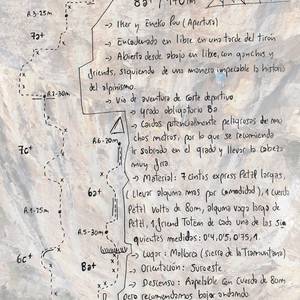 8a+ / 140m
R.3-25m
7a+
→ Iker y Eneko Pou (Apertura)
→ Encadenada en libre en una tarde del tirón
→ Abierta desde abajo en libre, con ganchos y
friends, siguiendo de una manera impecable la historia
del alpinismo.
R.2-30m
→ Vía de aventura de corte deportivo
→ Grado obligatorio 8a
→ Caídas potencialmente peligrosas de mu
chos metros, por lo que se recomienda
ir sobrado en el grado y llevar la cabeza
muy fría
R.6-20m
7c+
→ Material: 7 cintas express Petzl largas,
(llevar alguna más por comodidad), 1 cuerda
Petzl Volta de 80m, alguna vaga larga de
Petzl, 1 friend Totem de cada una de las si
guientes medidas: 0'4, 0'5, 0'75, 1.
6a+
R.1-25m
R.5-30m
6c+
8a+
→ Lugar: Mallorca (Sierra de la Tramuntana)
→ Orientación: Suroeste
→ Descenso: Rapelable con cuerda de 80m
pero recomendamos bajar andando